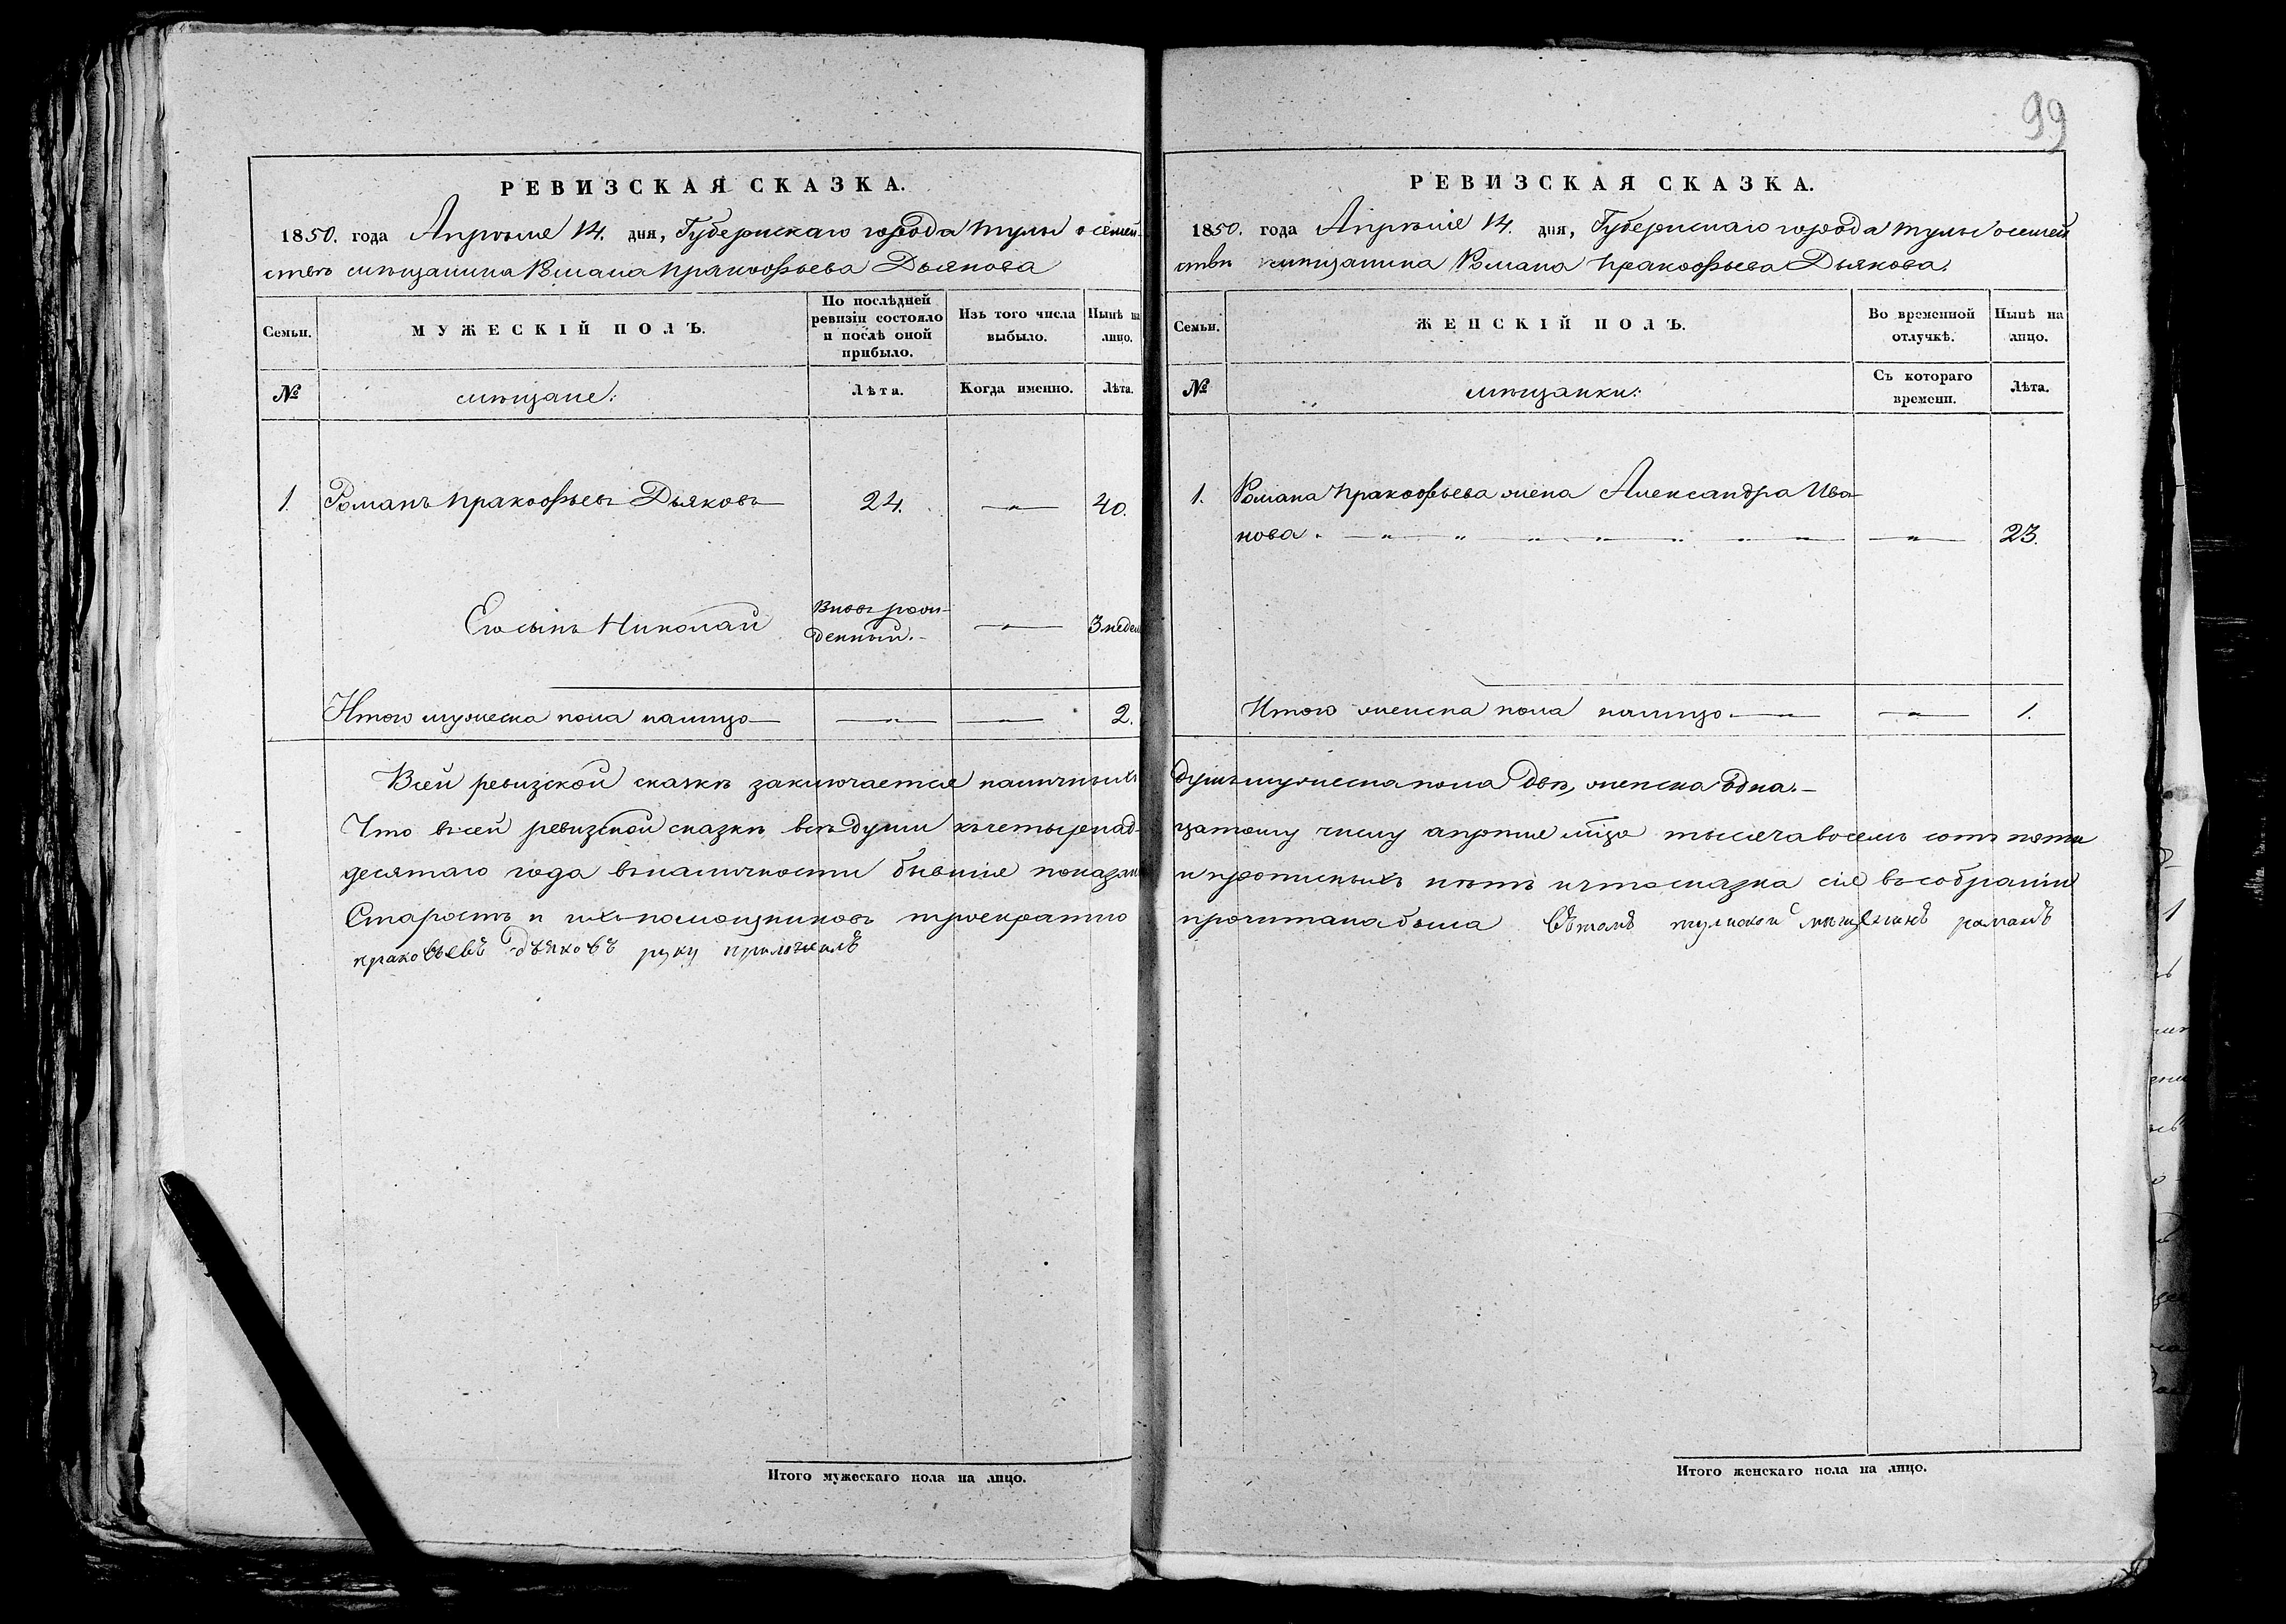 99
РЕВИЗСКАЯ СКАЗКА.
1850. года Апреля 14. дня, Губернскаго города тулы о семей-
ствѣ мѣщанина Романа пракофьева Дьякова
Семьи.
МУЖЕСКІЙ ПОЛЪ.
По послѣдней ревизіи состояло и послѣ оной прибыло.
Изъ того числа выбыло.
Нынѣ на лицо.
№
мѣщане:
Лѣта.
Когда именно.
Лѣта.
1. Романъ пракофьевъ Дьяковъ — 24. —„— 40.
Его сынъ Николай
Вновь рож-
денный. —„— 3 недел
Итого мужеска пола налицо — —„— —„— 2.
РЕВИЗСКАЯ СКАЗКА.
1850. года Апрѣля 14. дня, Губернскаго города тулы о семей
ствѣ мѣщанина Романа пракофьева Дьякова.
Семьи.
ЖЕНСКІЙ ПОЛЪ.
Во временной отлучкѣ.
Нынѣ на лицо.
№
мѣщанки:
Съ котораго времени.
Лѣта.
1. Романа пракофьева жена Александра Ива-
нова. —„— —„— 23.
Итого женска пола налицо. — —„— 1.
Всей ревизской сказкѣ заключается наличныхъ душъ мужеска пола двѣ, женска одна.—
Что всей ревизской сказкѣ всѣ души къ четырнад-цатому числу апреля мца тысяча восемь сотъ пяти
десятаго года въ наличности бывшіе показаны и прописныхъ нѣтъ и что сказка сія въ собраніи
Старостъ и ихъ помощниковъ троекратно прочитана была Вътомъ тулской мещенинъ раманъ
пракофьевъ дьяковъ руку приложилъ
Итого мужескаго пола на лицо.
Итого женскаго пола на лицо.